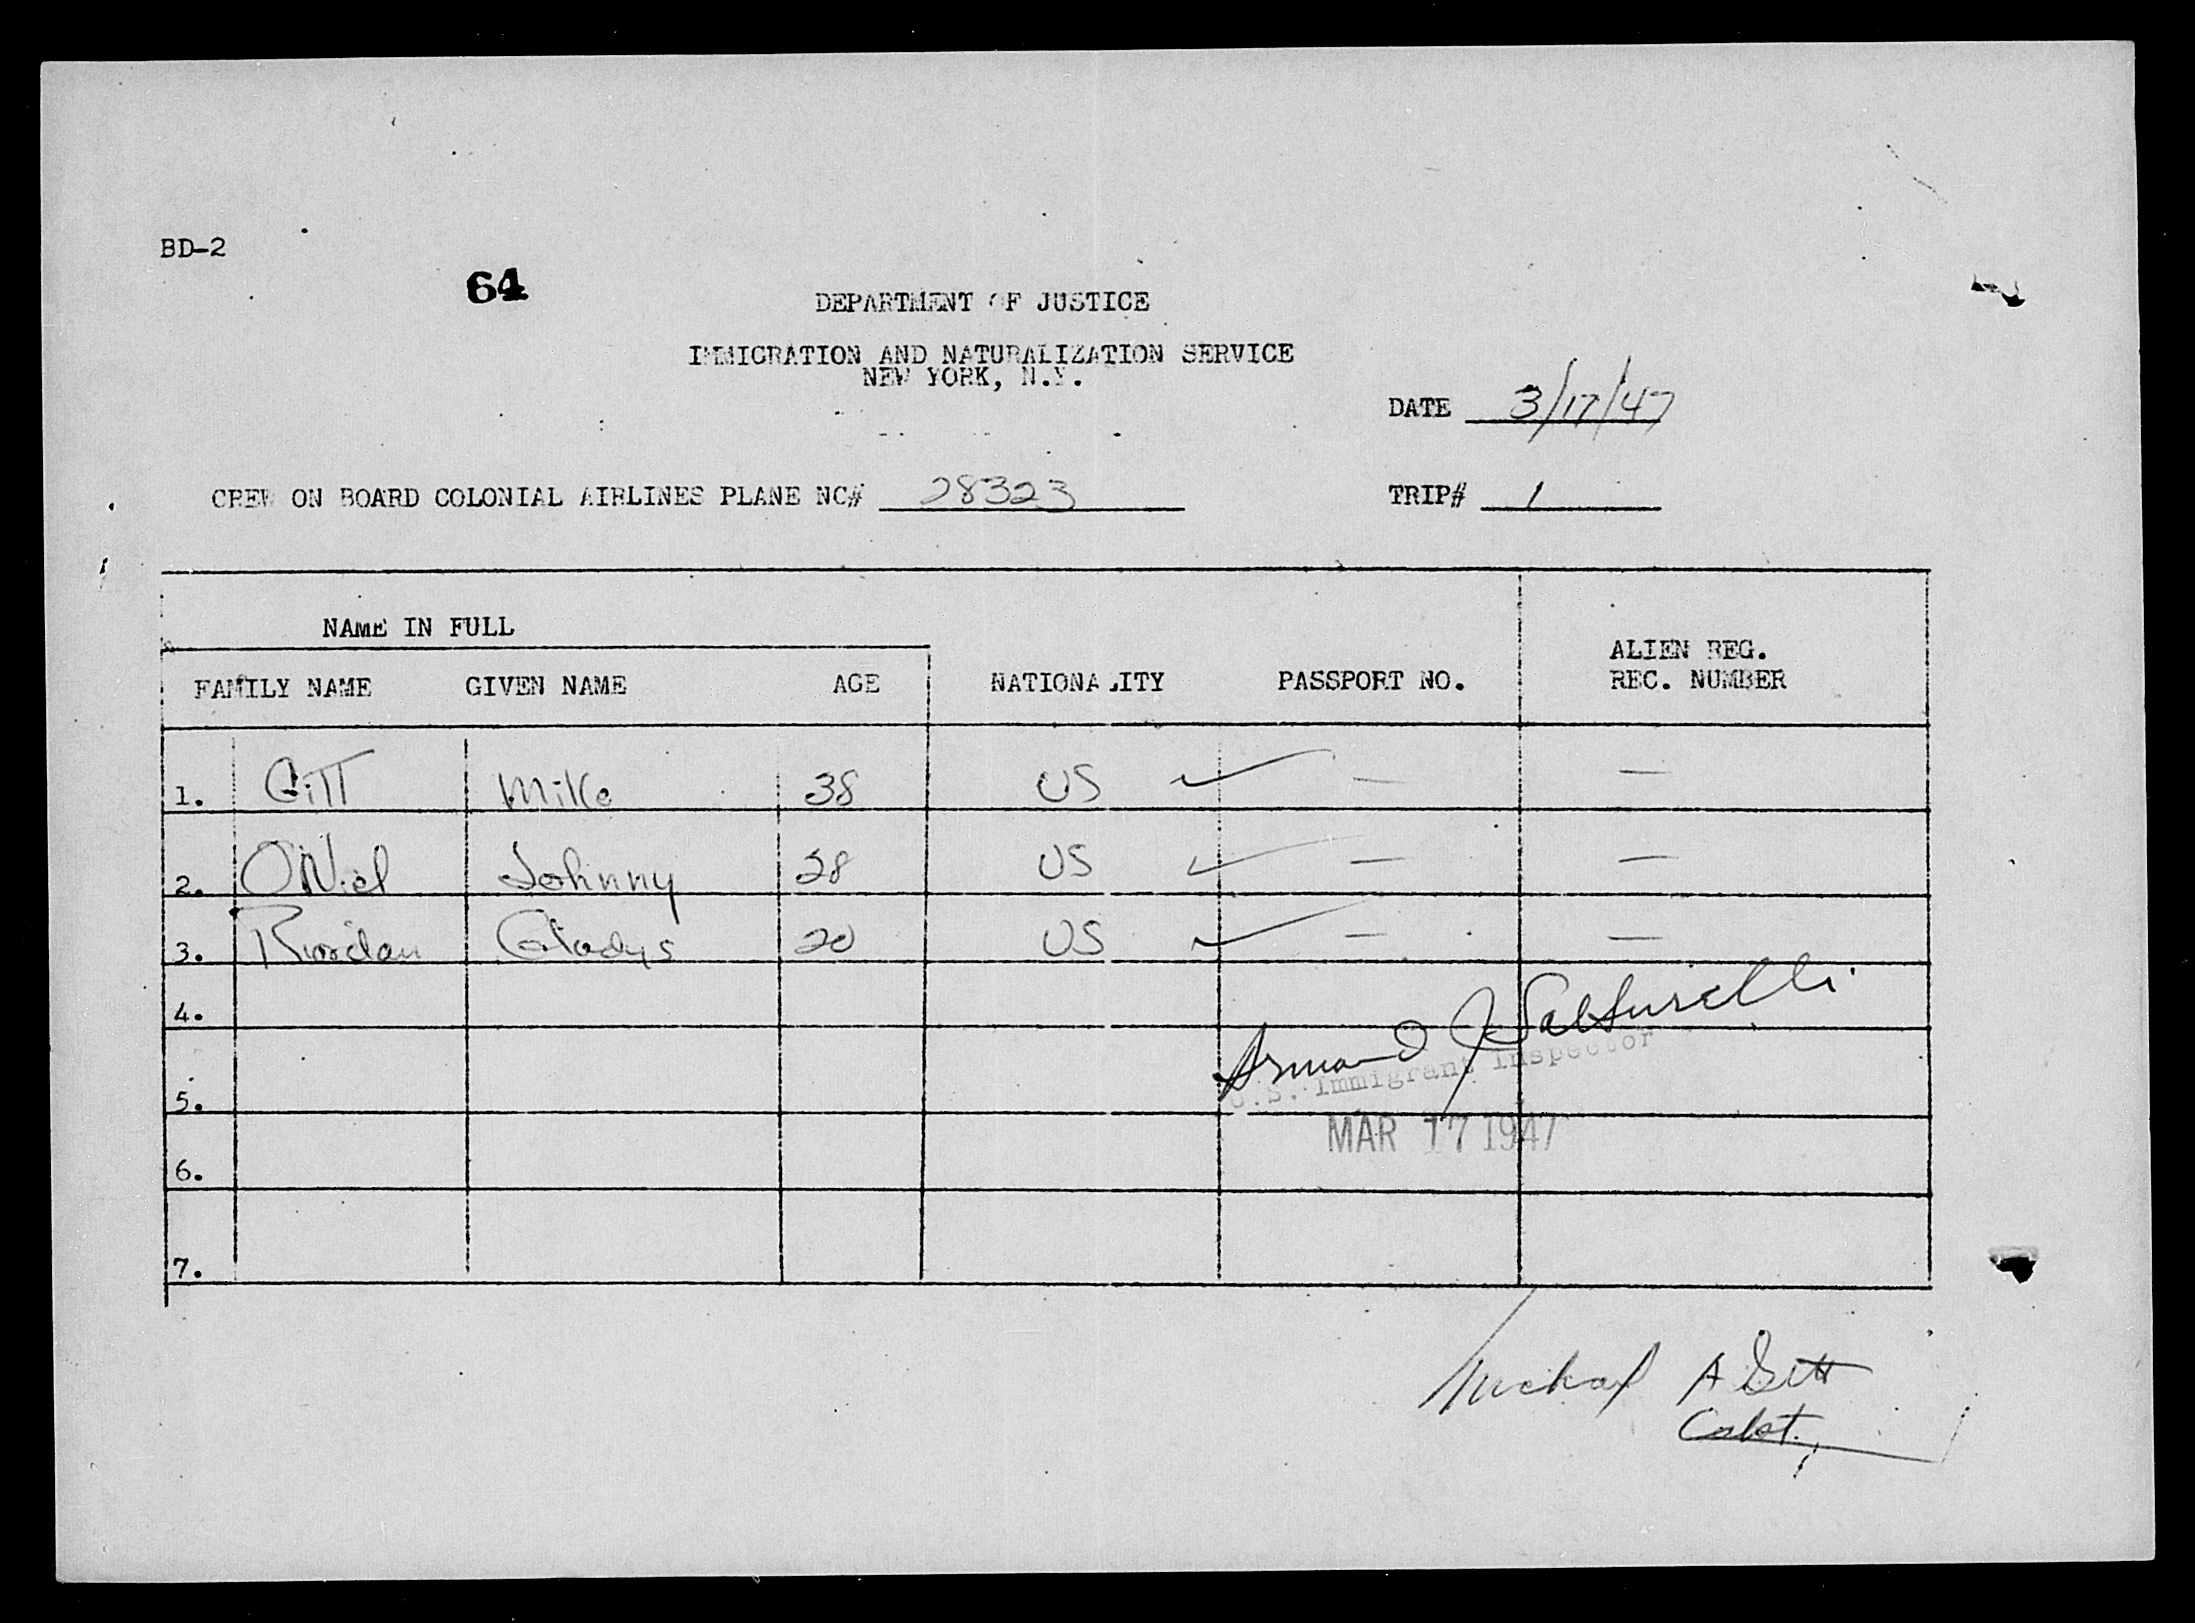 BD-2
64
DEPARTMENT OF JUSTICE
IMMIGRATION AND NATURALIZATION SERVICE
NEW YORK, N.Y.
DATE 3/17/47
CREW ON BOARD COLONIAL AIRLINES PLANE NC# 28323 TRIP# 1
NAME IN FULL
FAMILY NAME GIVEN NAME AGE NATIONALITY PASSPORT NO. ALIEN REG. REC. NUMBER
1. Gitt Mike 38 US ✓ — —
2. ONiel Johnny 28 US ✓ — —
3. Riordan Gladys 20 US ✓ — —
4.
Armand J Salturelli
U.S. Immigrant Inspector
5.
MAR 17 1947
6.
7.
Michael A Gitt
Capt.